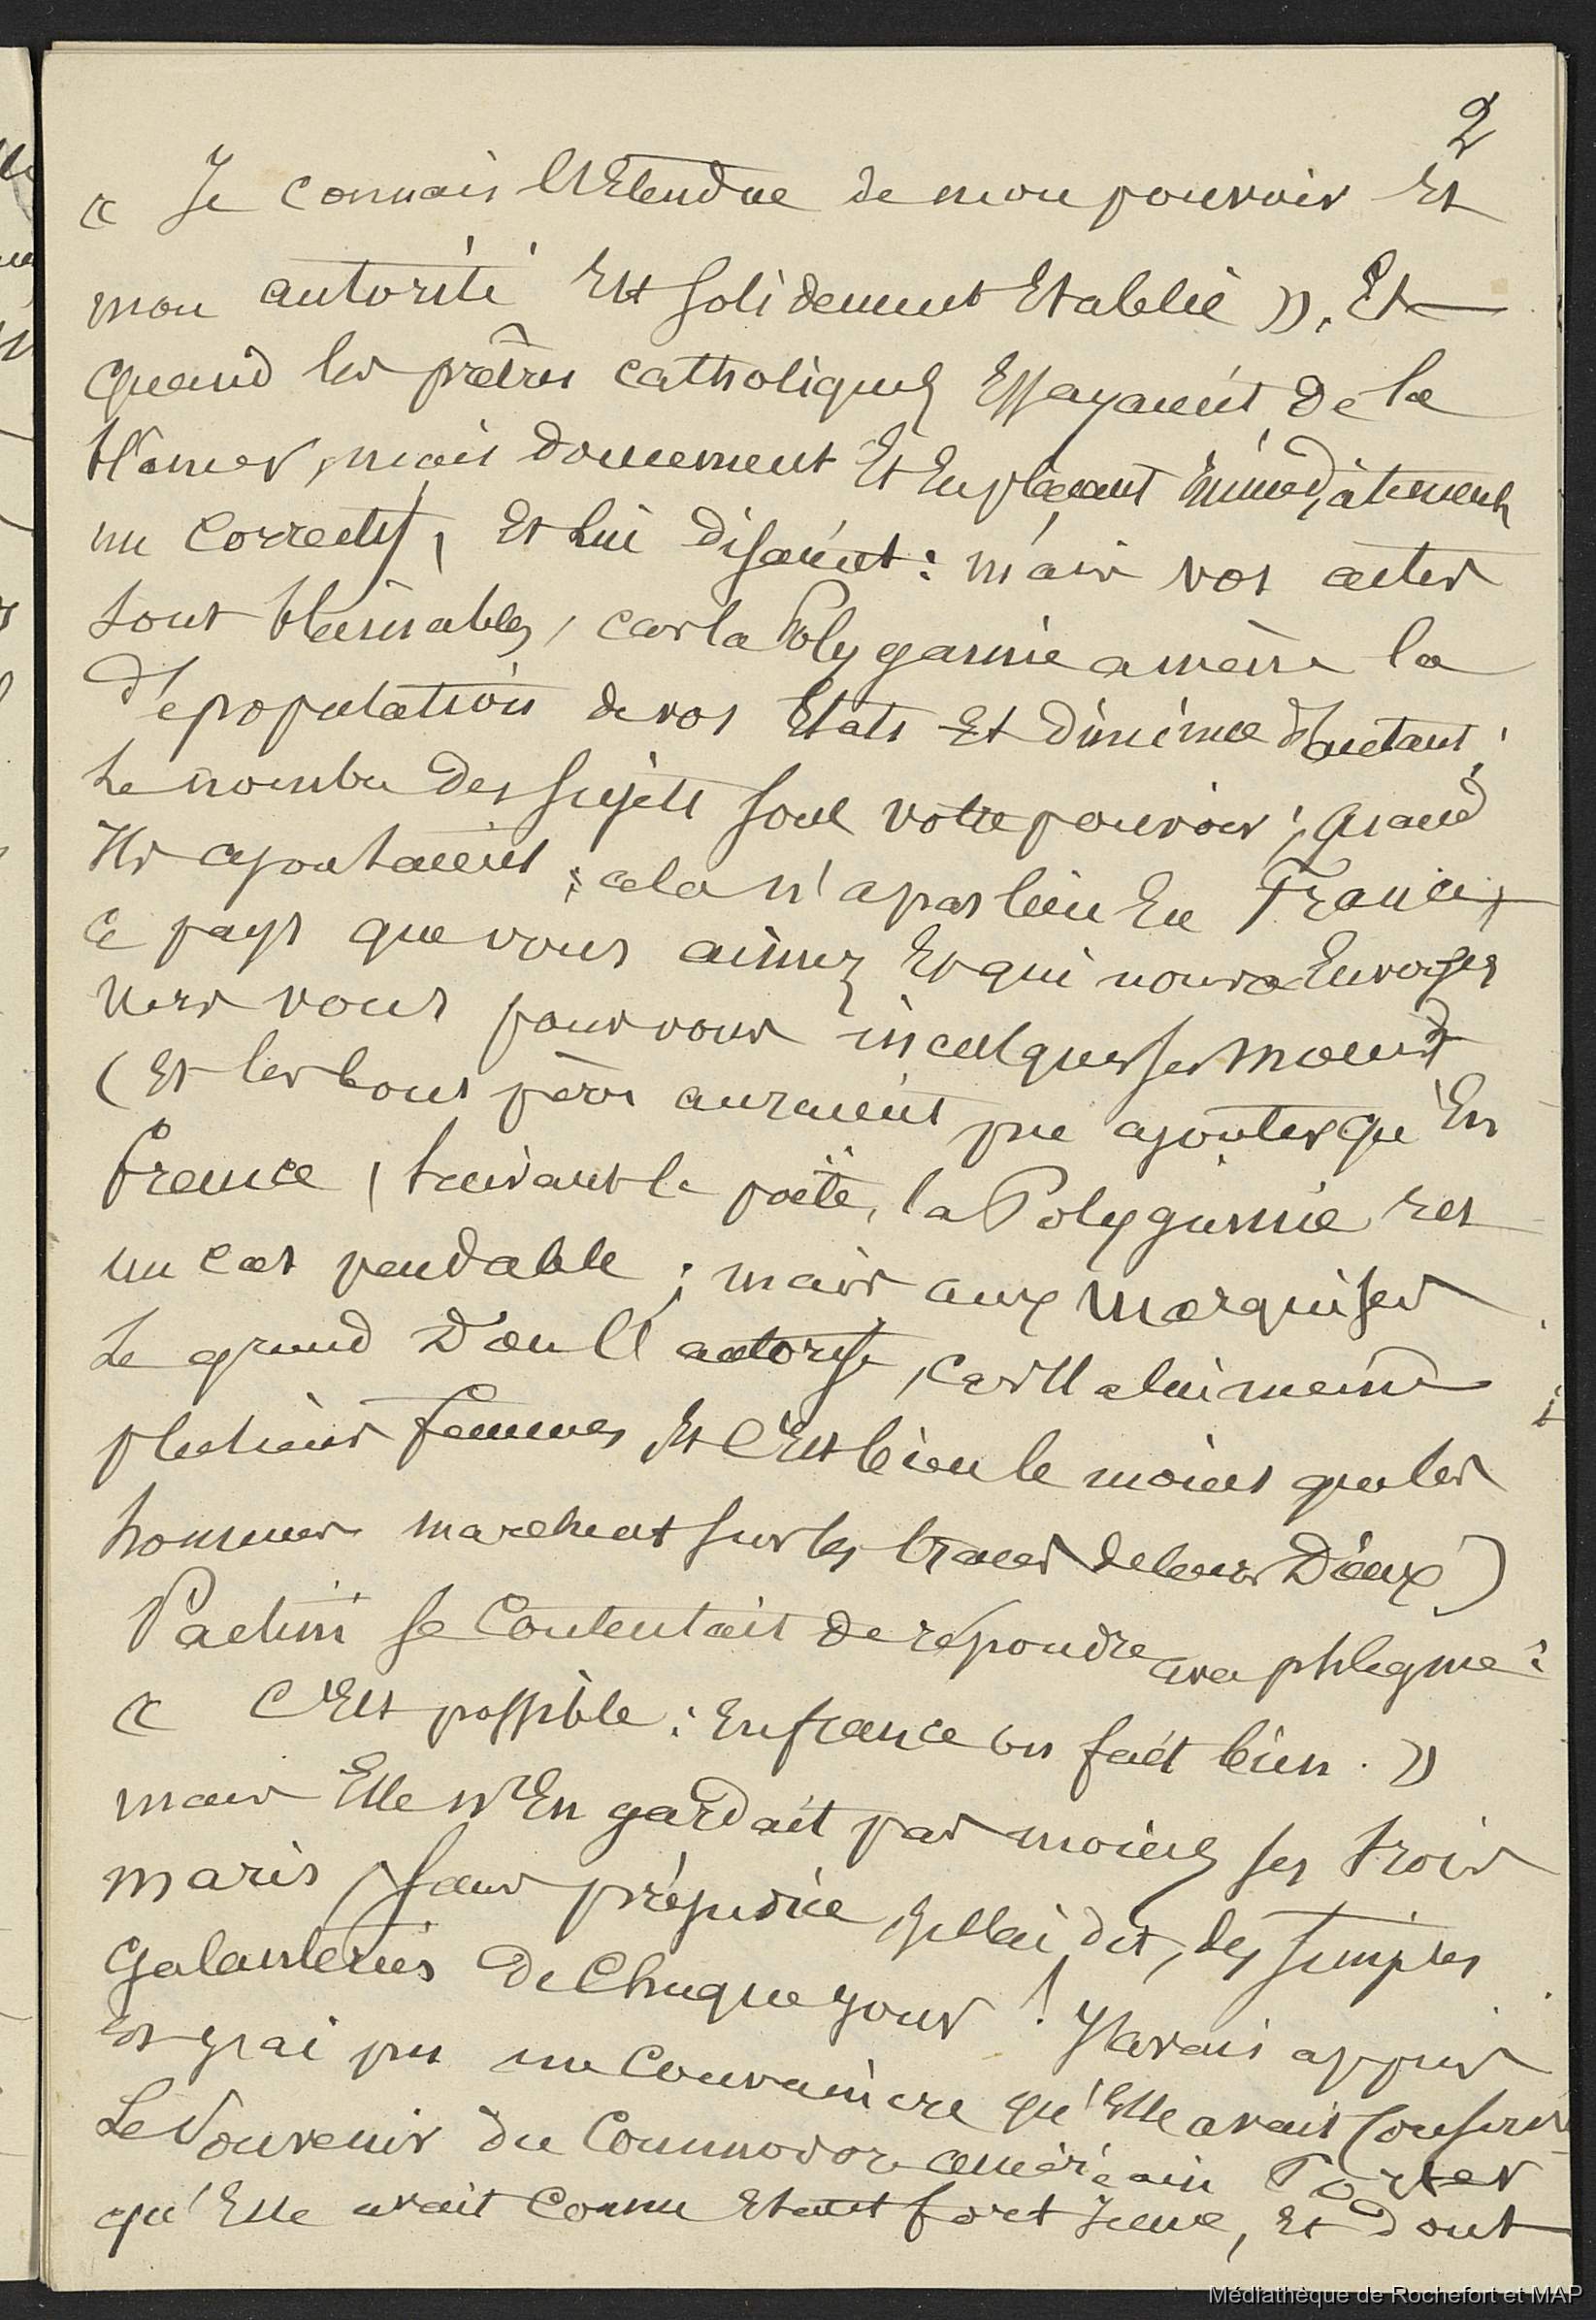 2
« Je connais l'Etendue de mon pouvoir Et
mon autorité Est solidement Etablie ». Et
quand les prêtres catholiques Essayaient de la
blamer, mais doucement Et En plaçant immédiatement
un correctif, Et lui disaient : mais vos actes
sont blamables, car la Polygamie amène la
dépopulation de vos Etats Et diminue d'autant ;
le nombre des sujets sous votre pouvoir ; quand
Ils ajoutaient : cela n'a pas lieu En France,
ce pays que vous aimez Et qui nous a Envoyés
vers vous pour vous inculquer ses mœurs
(Et les bons pères auraient pu ajouter qu'En
France, suivant le poëte, la Polygamie Est
un cas pendable ; mais aux Marquises
le grand Dieu l'autorise, car Il a lui même
plusieurs femmes, Et c'Est bien le moins que les
hommes marchent sur les traces de leurs Dieux)
Vaekehu se contentait de répondre avec phlegme :
« C'Est possible : En france on fait bien. »
mais Elle n'En gardait pas moins ses trois
maris, sans préjudice, je l'ai dit, des simples
galanteries de chaque jour ! J'avais appris
Et j'ai pu me convaincre qu'Elle avait conservé
le Souvenir du Commodore américain Porter
qu'Elle avait connu Etant fort Jeune, Et dont
Médiathèque de Rochefort et MAP